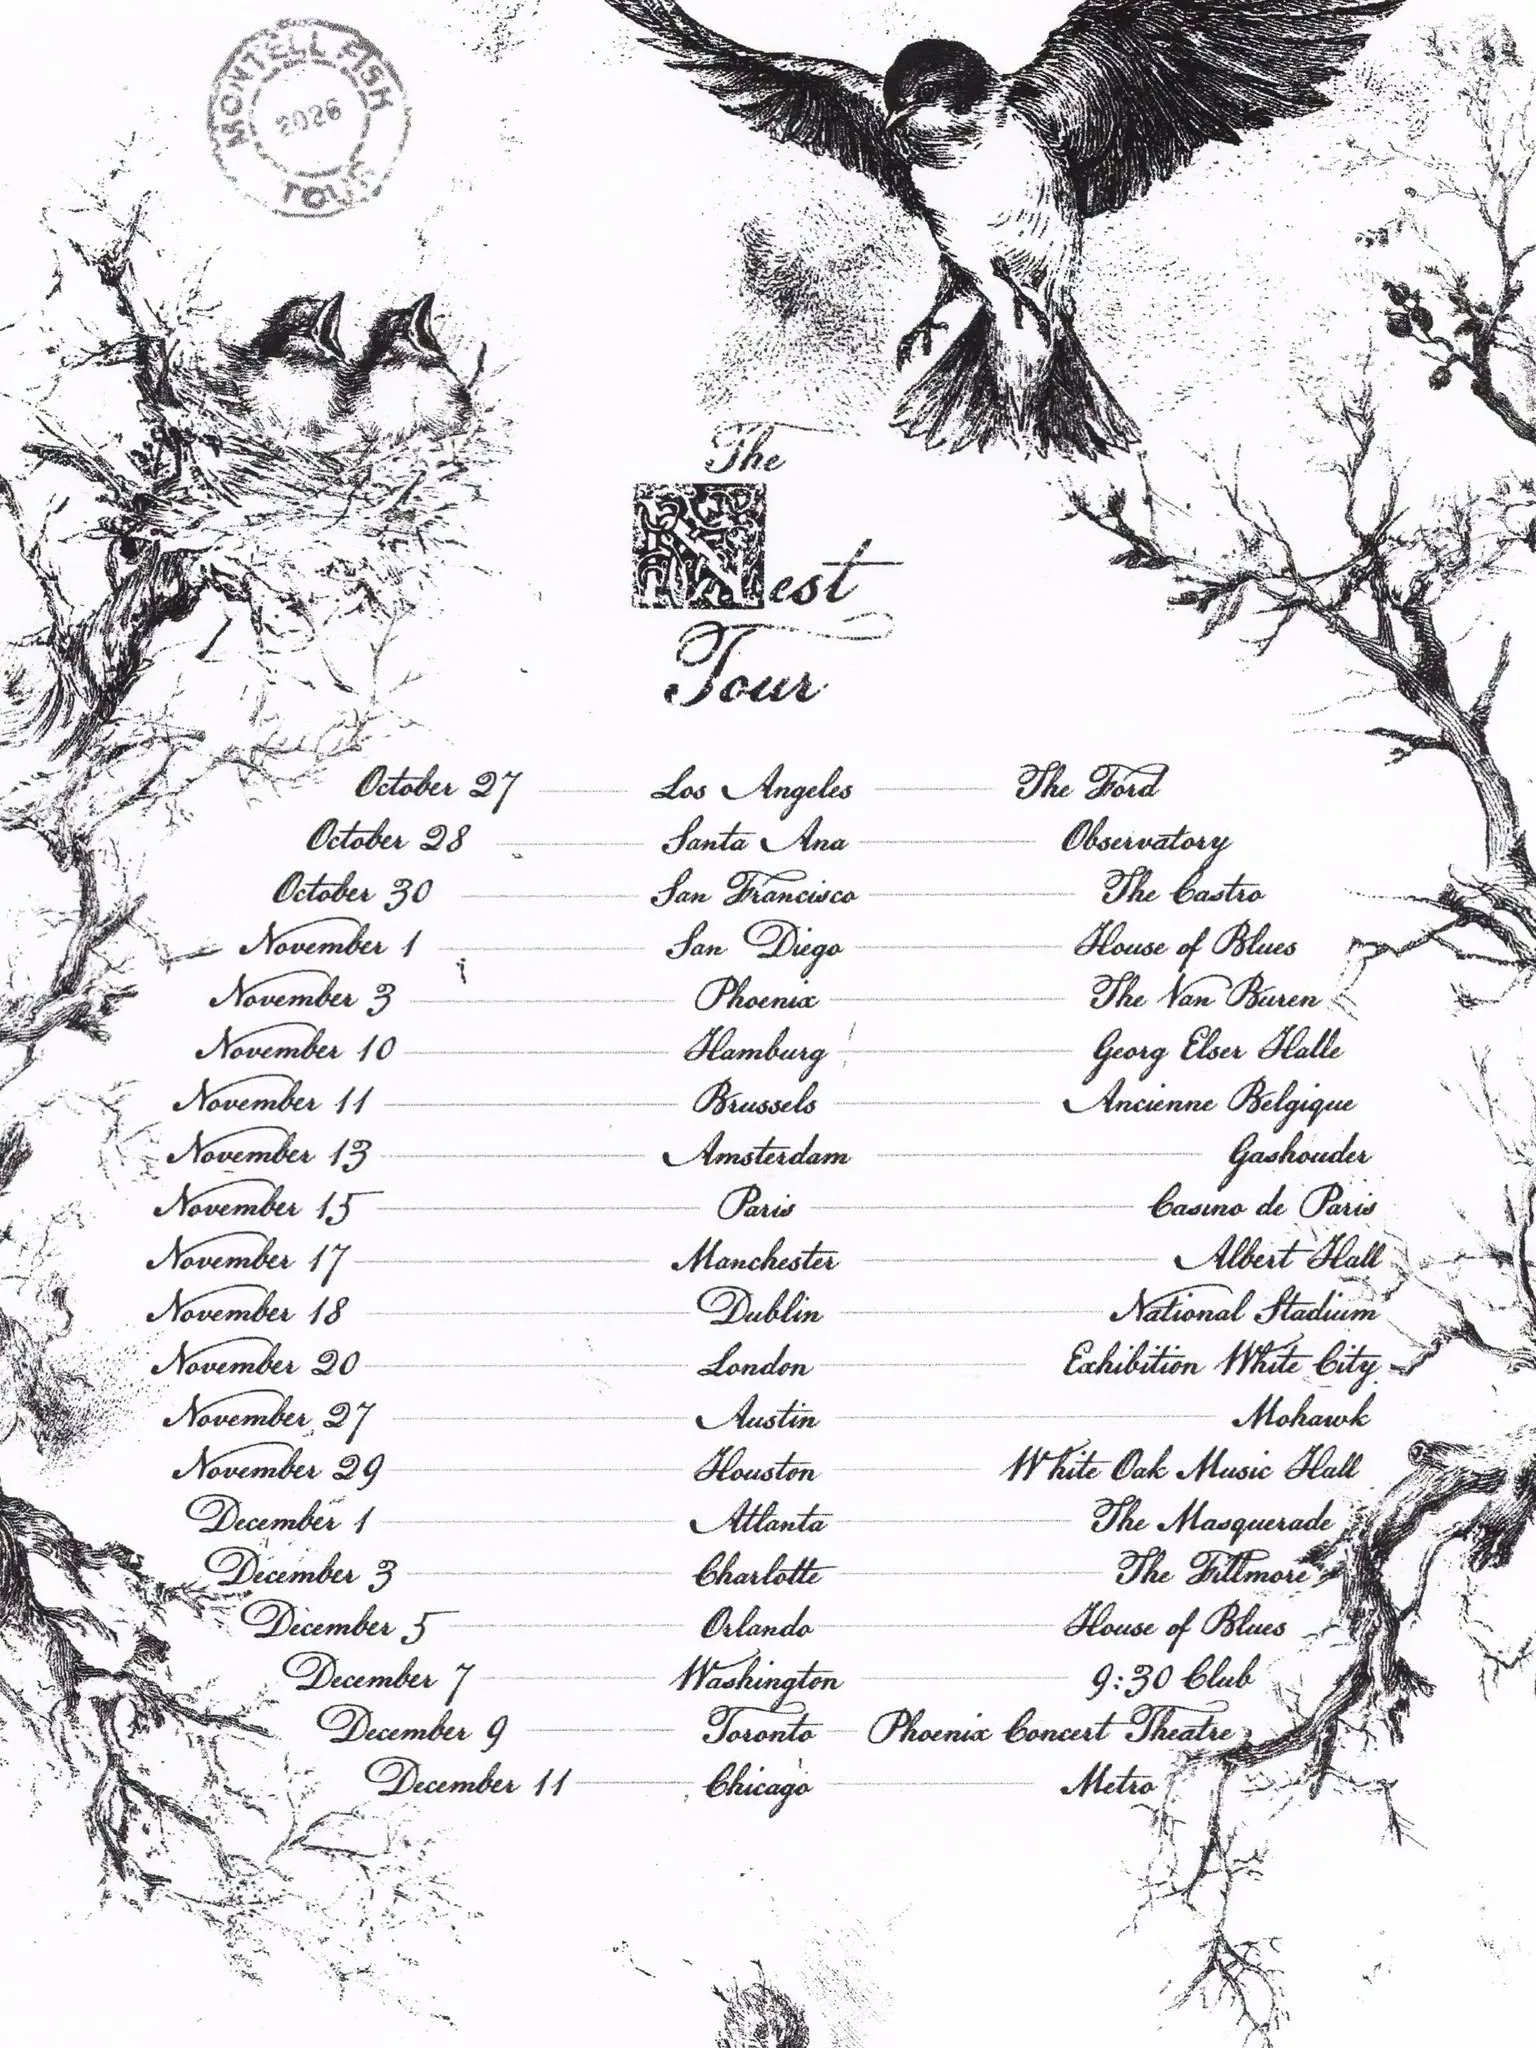 MONTELL FISH
2026
TOUR
The
Nest
Tour
October 27 Los Angeles The Ford
October 28 Santa Ana Observatory
October 30 San Francisco The Castro
November 1 San Diego House of Blues
November 3 Phoenix The Van Buren
November 10 Hamburg Georg Elser Halle
November 11 Brussels Ancienne Belgique
November 13 Amsterdam Gashouder
November 15 Paris Casino de Paris
November 17 Manchester Albert Hall
November 18 Dublin National Stadium
November 20 London Exhibition White City
November 27 Austin Mohawk
November 29 Houston White Oak Music Hall
December 1 Atlanta The Masquerade
December 3 Charlotte The Fillmore
December 5 Orlando House of Blues
December 7 Washington 9:30 Club
December 9 Toronto Phoenix Concert Theatre
December 11 Chicago Metro